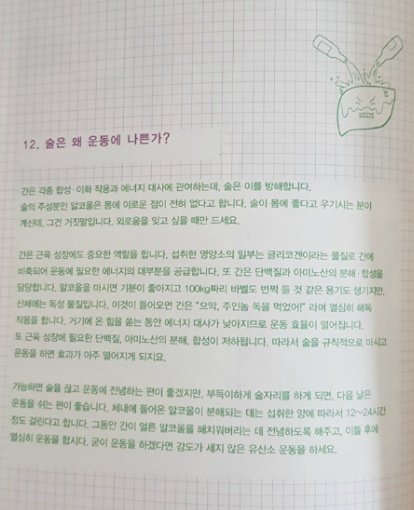 12. 술은 왜 운동에 나쁜가?
간은 각종 합성·이화 작용과 에너지 대사에 관여하는데, 술은 이를 방해합니다.
술의 주성분인 알코올은 몸에 이로운 점이 전혀 없다고 합니다. 술이 몸에 좋다고 우기시는 분이
계신데, 그건 거짓말입니다. 외로움을 잊고 싶을 때만 드세요.
간은 근육 성장에도 중요한 역할을 합니다. 섭취한 영양소의 일부는 글리코겐이라는 물질로 간에
비축되어 운동에 필요한 에너지의 대부분을 공급합니다. 또 간은 단백질과 아미노산의 분해·합성을
담당합니다. 알코올을 마시면 기분이 좋아지고 100kg짜리 바벨도 번쩍 들 것 같은 용기도 생기지만,
신체에는 독성 물질입니다. 이것이 들어오면 간은 “으악, 주인놈 독을 먹었어!” 라며 열심히 해독
작용을 합니다. 거기에 온 힘을 쏟는 동안 에너지 대사가 낮아지므로 운동 효율이 떨어집니다.
또 근육 성장에 필요한 단백질, 아미노산의 분해, 합성이 저하됩니다. 따라서 술을 규칙적으로 마시고
운동을 하면 효과가 아주 떨어지게 되지요.
가능하면 술을 끊고 운동에 전념하는 편이 좋겠지만, 부득이하게 술자리를 하게 되면, 다음 날은
운동을 쉬는 편이 좋습니다. 체내에 들어온 알코올이 분해되는 데는 섭취한 양에 따라서 12~24시간
정도 걸린다고 합니다. 그동안 간이 얼른 알코올을 해치워버리는 데 전념하도록 해주고, 이틀 후에
열심히 운동을 합시다. 굳이 운동을 하겠다면 강도가 세지 않은 유산소 운동을 하세요.